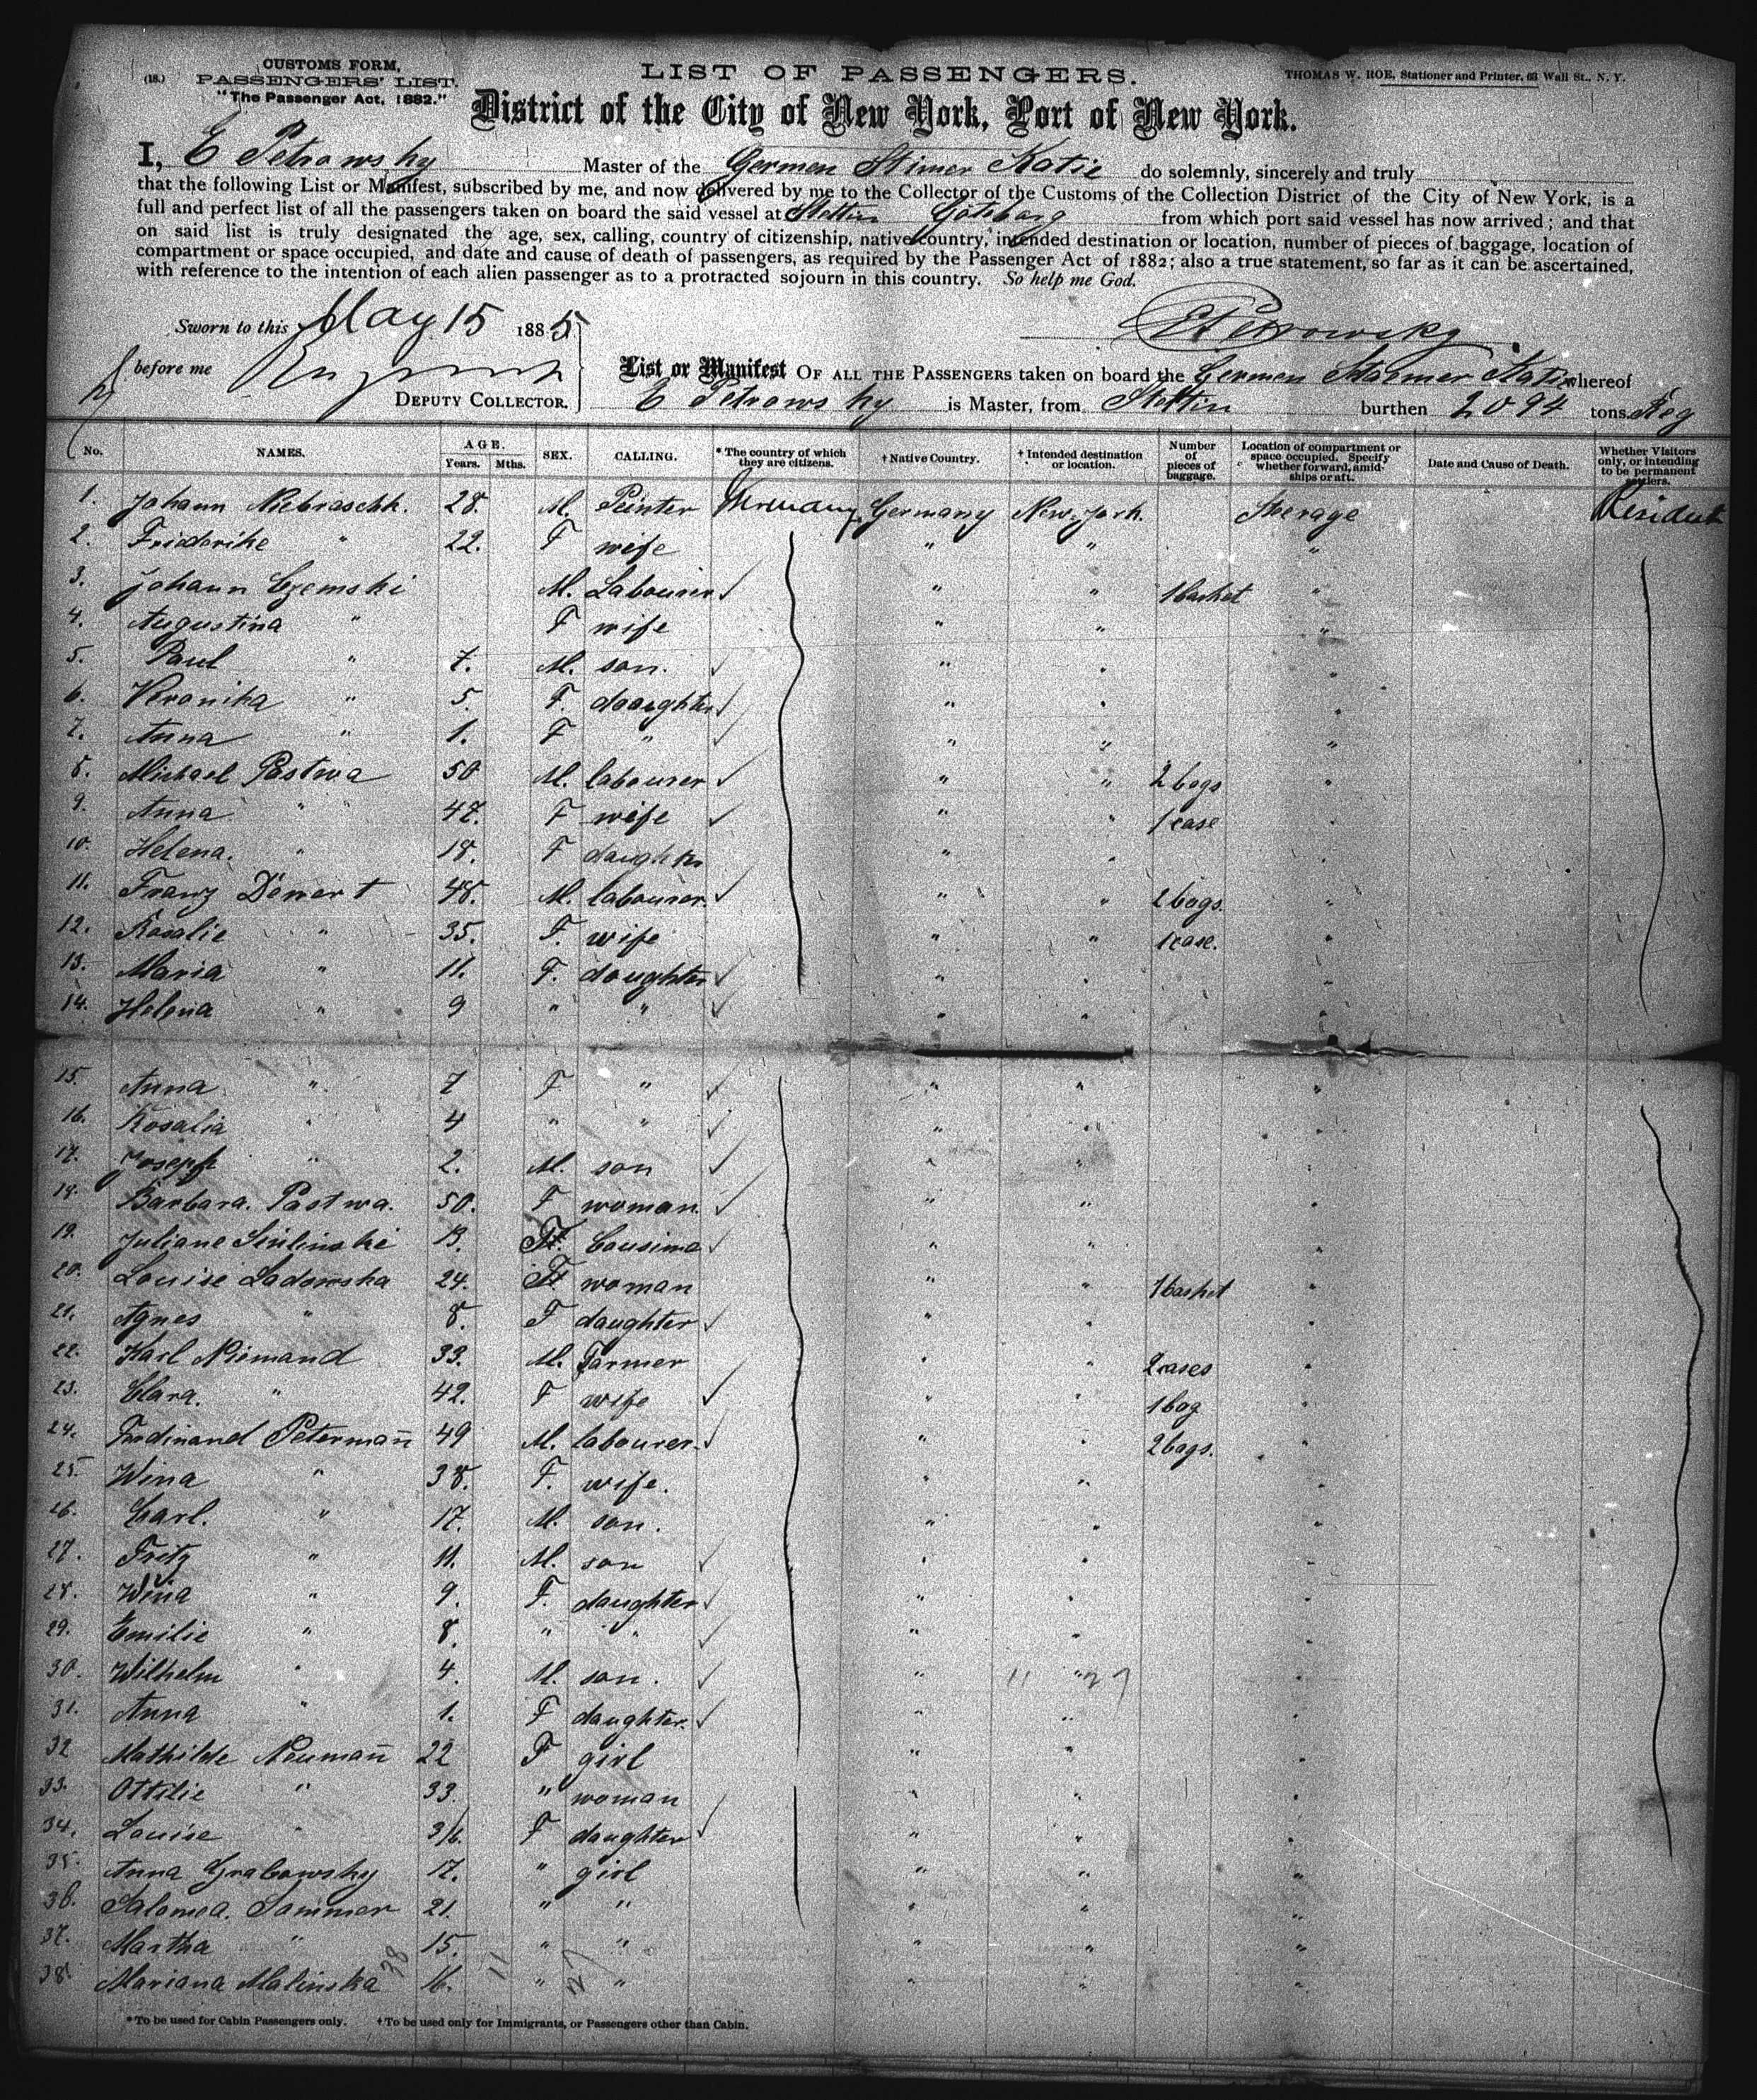 CUSTOMS FORM.
(18.) PASSENGERS' LIST.
"The Passenger Act, 1882."
LIST OF PASSENGERS.
THOMAS W. ROE, Stationer and Printer, 63 Wall St., N. Y.
District of the City of New York, Port of New York.
I, E Petrowsky Master of the Germen Stimer Katie do solemnly, sincerely and truly
that the following List or Manifest, subscribed by me, and now delivered by me to the Collector of the Customs of the Collection District of the City of New York, is a
full and perfect list of all the passengers taken on board the said vessel at Stettin Goteborg from which port said vessel has now arrived; and that
on said list is truly designated the age, sex, calling, country of citizenship, native country, intended destination or location, number of pieces of baggage, location of
compartment or space occupied, and date and cause of death of passengers, as required by the Passenger Act of 1882; also a true statement, so far as it can be ascertained,
with reference to the intention of each alien passenger as to a protracted sojourn in this country. So help me God.
Sworn to this May 15 1885
EPetrowsky
before me
DEPUTY COLLECTOR.
List or Manifest OF ALL THE PASSENGERS taken on board the Germen Staemer Katie whereof
E Petrowsky is Master, from Stettin burthen 2094 tons. Reg
No. NAMES. AGE. Years. Mths. SEX. CALLING. * The country of which they are citizens. † Native Country. † Intended destination or location. Number of pieces of baggage. Location of compartment or space occupied. Specify whether forward, amidships or aft. Date and Cause of Death. Whether Visitors only, or intending to be permanent settlers.
1. Johann Niebraschk. 28. M. Peinter Germany Germany New-York. Sterage Resident
2. Friederike " 22. F wife " " "
3. Johann Czemski M. Labourer " " 1 basket "
4. Augustina " F wife " " "
5. Paul " 7. M. son. " " "
6. Veronika " 5. F. daughter " " "
7. Anna " 1. F " " " "
8. Michael Pastwa 50 M. labourer " " 2 bags "
9. Anna " 47. F wife " " 1 case "
10. Helena. " 18. F daughter " " "
11. Franz Dewert 48. M. labourer. " " 2 bags. "
12. Rosalie " 35. F. wife " " 1 case. "
13. Maria " 11. F. doughter " " "
14. Helena " 9 " " " " "
15. Anna " 7 F " " " "
16. Rosalia " 4 " " " " "
17. Joseph " 2. M. son " " "
18. Barbara. Pastwa. 50. F woman. " " "
19. Juliane Siulinski 13. F. Cousine " " "
20. Louise Sadowska 24. F woman " " 1 basket "
21. Agnes " 8. F daughter " " "
22. Karl Niemand 33. M. Farmer " " 2 cases "
23. Clara. " 42. F wife " " 1 bag "
24. Ferdinand Petermañ 49 M. labourer. " " 2 bags. "
25. Wina " 38. F. wife. " " "
26. Carl. " 17. M. son. " " "
27. Fritz " 11. M. son " " "
28. Wina " 9. F. daughter " " "
29. Emilie " 8. " " " " "
30. Wilhelm " 4. M. son. " 11 " 27 "
31. Anna " 1. F daughter. " " "
32 Mathilde Neumañ 22 F girl " " "
33. Ottilie " 33. " woman " " "
34. Louise " 3/6. F daughter " " "
35. Anna Grabowsky 17. " girl " " "
36. Salomea. Sommer 21. " " " " "
37. Martha " 15. " " " " "
38. Mariana Malinska 38 16. 11 " 27 " " "
* To be used for Cabin Passengers only. † To be used only for Immigrants, or Passengers other than Cabin.